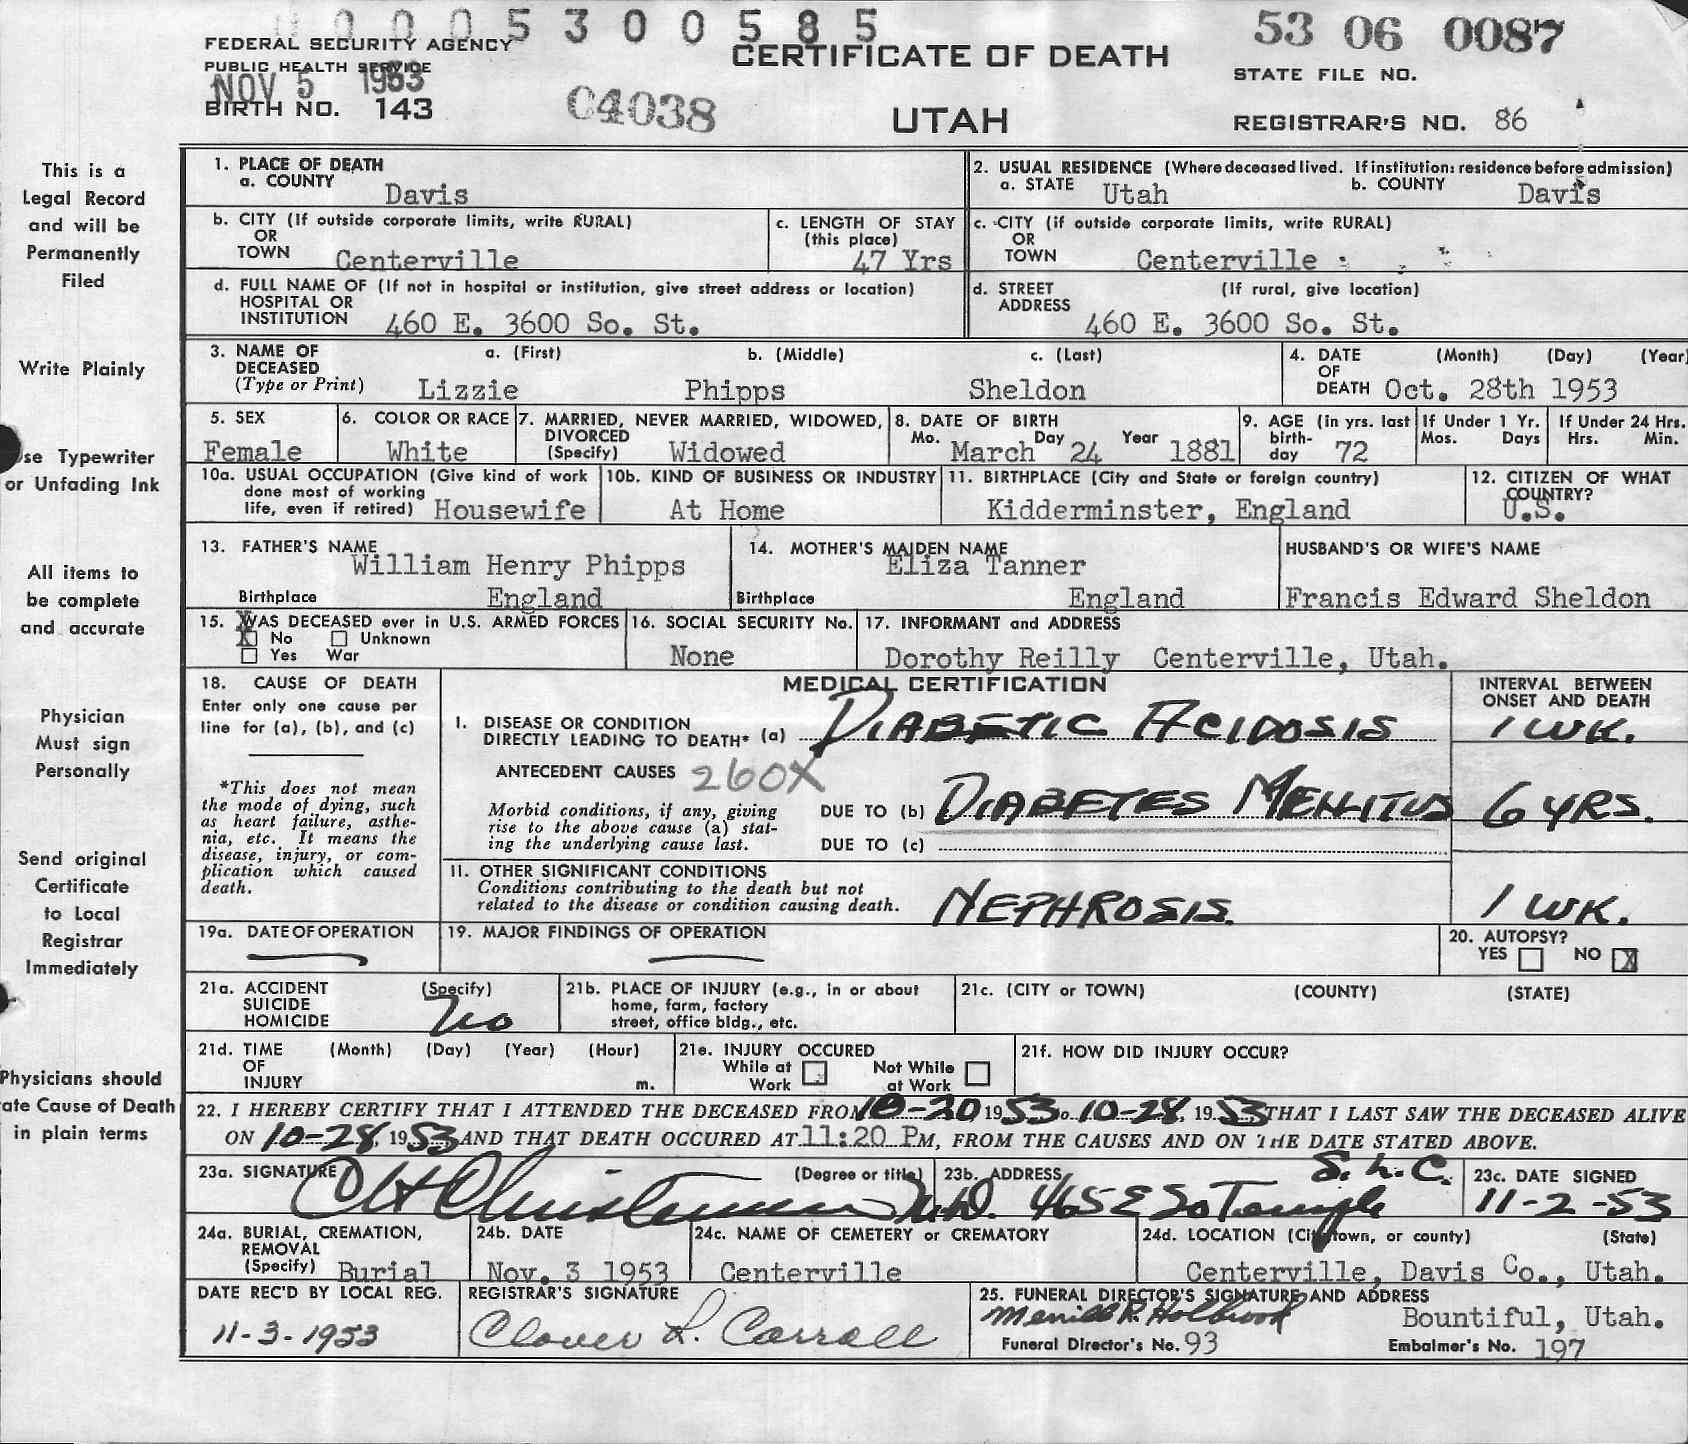 0005300585
53 06 0087
FEDERAL SECURITY AGENCY
PUBLIC HEALTH SERVICE
NOV 5 1953
BIRTH NO. 143
C4038
CERTIFICATE OF DEATH
UTAH
STATE FILE NO.
REGISTRAR'S NO. 86
This is a
Legal Record
and will be
Permanently
Filed
Write Plainly
se Typewriter
or Unfading Ink
All items to
be complete
and accurate
Physician
Must sign
Personally
Send original
Certificate
to Local
Registrar
Immediately
Physicians should
ate Cause of Death
in plain terms
1. PLACE OF DEATH
a. COUNTY Davis
2. USUAL RESIDENCE (Where deceased lived. If institution: residence before admission)
a. STATE Utah b. COUNTY Davis
b. CITY (If outside corporate limits, write RURAL)
OR
TOWN Centerville
c. LENGTH OF STAY
(this place)
47 Yrs
c. CITY (if outside corporate limits, write RURAL)
OR
TOWN Centerville
d. FULL NAME OF (If not in hospital or institution, give street address or location)
HOSPITAL OR
INSTITUTION 460 E. 3600 So. St.
d. STREET (If rural, give location)
ADDRESS
460 E. 3600 So. St.
3. NAME OF a. (First) b. (Middle) c. (Last)
DECEASED
(Type or Print) Lizzie Phipps Sheldon
4. DATE (Month) (Day) (Year)
OF
DEATH Oct. 28th 1953
5. SEX
Female
6. COLOR OR RACE
White
7. MARRIED, NEVER MARRIED, WIDOWED,
DIVORCED
(Specify) Widowed
8. DATE OF BIRTH
Mo. Day Year
March 24 1881
9. AGE (in yrs. last
birth-
day 72
If Under 1 Yr.
Mos. Days
If Under 24 Hrs.
Hrs. Min.
10a. USUAL OCCUPATION (Give kind of work
done most of working
life, even if retired) Housewife
10b. KIND OF BUSINESS OR INDUSTRY
At Home
11. BIRTHPLACE (City and State or foreign country)
Kidderminster, England
12. CITIZEN OF WHAT
COUNTRY?
U.S.
13. FATHER'S NAME
William Henry Phipps
Birthplace England
14. MOTHER'S MAIDEN NAME
Eliza Tanner
Birthplace England
HUSBAND'S OR WIFE'S NAME
Francis Edward Sheldon
15. WAS DECEASED ever in U.S. ARMED FORCES
X No Unknown
Yes War
16. SOCIAL SECURITY No.
None
17. INFORMANT and ADDRESS
Dorothy Reilly Centerville, Utah.
18. CAUSE OF DEATH
Enter only one cause per
line for (a), (b), and (c)
*This does not mean
the mode of dying, such
as heart failure, asthe-
nia, etc. It means the
disease, injury, or com-
plication which caused
death.
MEDICAL CERTIFICATION
INTERVAL BETWEEN
ONSET AND DEATH
I. DISEASE OR CONDITION
DIRECTLY LEADING TO DEATH* (a) DIABETIC ACIDOSIS 1 WK.
ANTECEDENT CAUSES 260X
Morbid conditions, if any, giving
rise to the above cause (a) stat-
ing the underlying cause last.
DUE TO (b) DIABETES MELLITUS 6 YRS.
DUE TO (c)
11. OTHER SIGNIFICANT CONDITIONS
Conditions contributing to the death but not
related to the disease or condition causing death.
NEPHROSIS. 1 WK.
19a. DATE OF OPERATION
19. MAJOR FINDINGS OF OPERATION
20. AUTOPSY?
YES NO X
21a. ACCIDENT (Specify)
SUICIDE
HOMICIDE No
21b. PLACE OF INJURY (e.g., in or about
home, farm, factory
street, office bldg., etc.
21c. (CITY or TOWN) (COUNTY) (STATE)
21d. TIME (Month) (Day) (Year) (Hour)
OF
INJURY m.
21e. INJURY OCCURED
While at Work Not While at Work
21f. HOW DID INJURY OCCUR?
22. I HEREBY CERTIFY THAT I ATTENDED THE DECEASED FROM 10-20, 1953 to 10-28, 1953, THAT I LAST SAW THE DECEASED ALIVE
ON 10-28, 1953 AND THAT DEATH OCCURED AT 11:20 PM, FROM THE CAUSES AND ON THE DATE STATED ABOVE.
23a. SIGNATURE (Degree or title)
M.D.
23b. ADDRESS S.L.C.
465 E So Temple
23c. DATE SIGNED
11-2-53
24a. BURIAL, CREMATION,
REMOVAL
(Specify) Burial
24b. DATE
Nov. 3 1953
24c. NAME OF CEMETERY or CREMATORY
Centerville
24d. LOCATION (City, town, or county) (State)
Centerville, Davis Co., Utah.
DATE REC'D BY LOCAL REG.
11-3-1953
REGISTRAR'S SIGNATURE
Clover L. Carroll
25. FUNERAL DIRECTOR'S SIGNATURE AND ADDRESS
Merrill R. Holbrook Bountiful, Utah.
Funeral Director's No. 93 Embalmer's No. 197